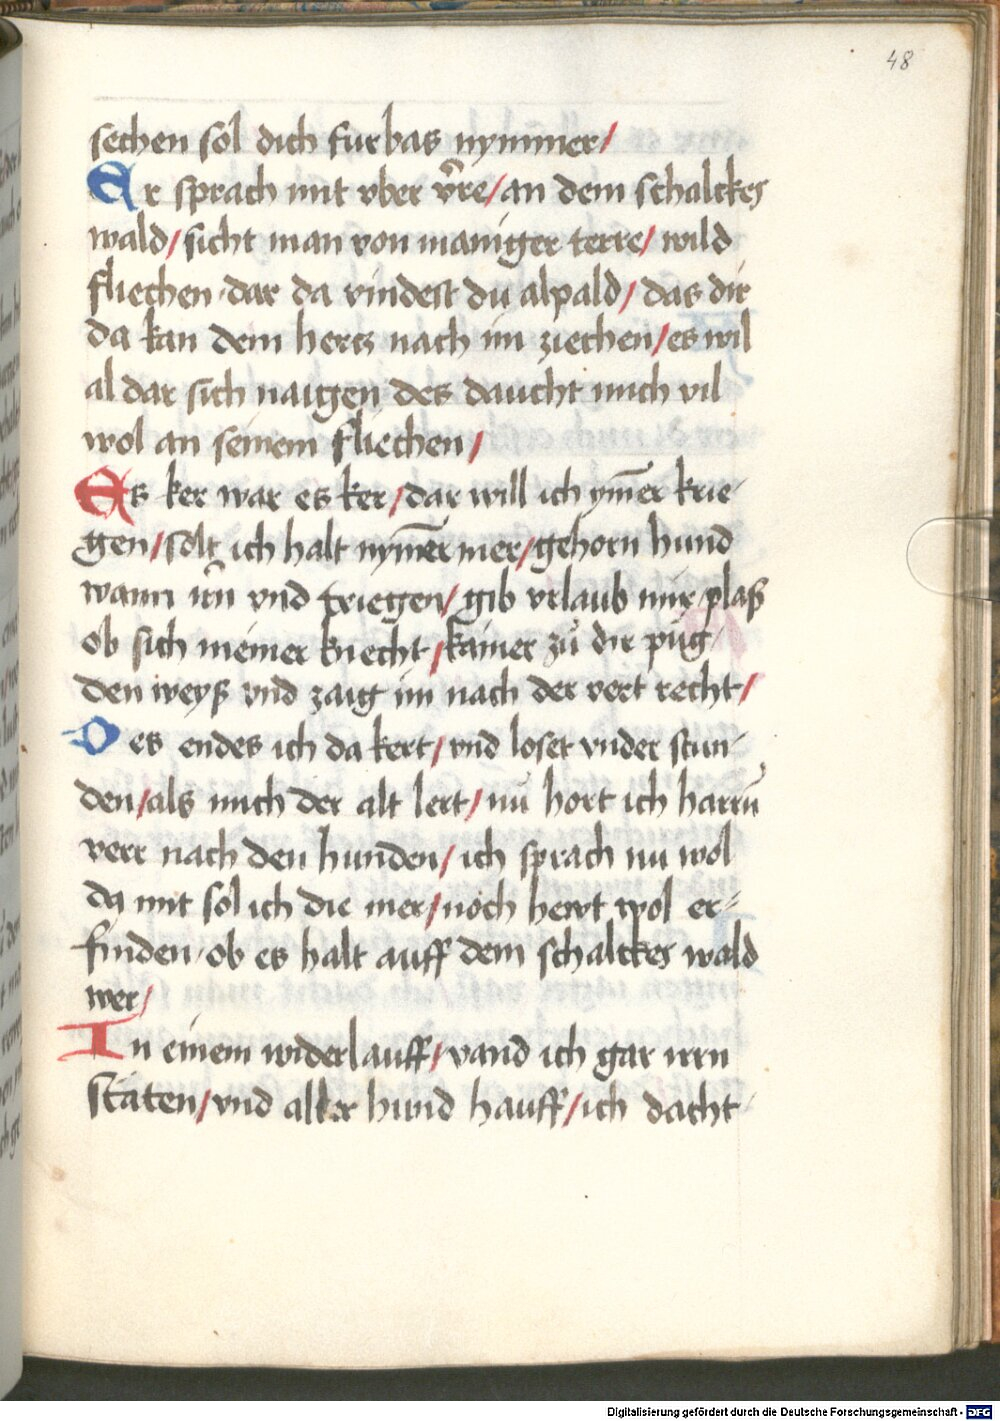 48
sechen sol dich furbas nymmer/
Er sprach mit vber v̈re/an dem schalckes
wald/sicht man von maniger terre/ wild
fliechen dar da vindest du alpald/ das dir
da kan dem hertz nach im ziechen/es wil
al dar sich naigen des daucht mich vil
wol an seinem fliechen/
Es ker war es ker/dar will ich ym̄er krie-
gen/solt ich halt nym̄er mer/gehorn hund
wann irn vnd triegen/ gib vrlaub mir plaß
ob sich meiner knecht/kainer zů dir püg
den weyß vnd zaig im nach der vert recht/
Des endes ich da kert/vnd loset vnder stun-
den/als mich der alt lert/nu hort ich harrn
verr nach den hunden/ich sprach nu wol
da mit sol ich die mer/noch hewt wol er-
finden ob es halt auff dem schalckes wald
wer/
In einem widerlauff/vand ich gar irrn
stäten/vnd aller hund hauff/ich dacht
Digitalisierung gefördert durch die Deutsche Forschungsgemeinschaft - DFG